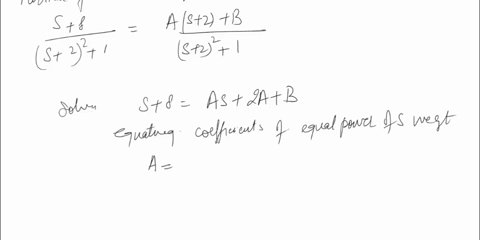 S+8 / (S+2)²+1 = A(S+2)+B / (S+2)²+1
Solve S+8 = AS+2A+B
equating coefficients of equal power of S we get
A=